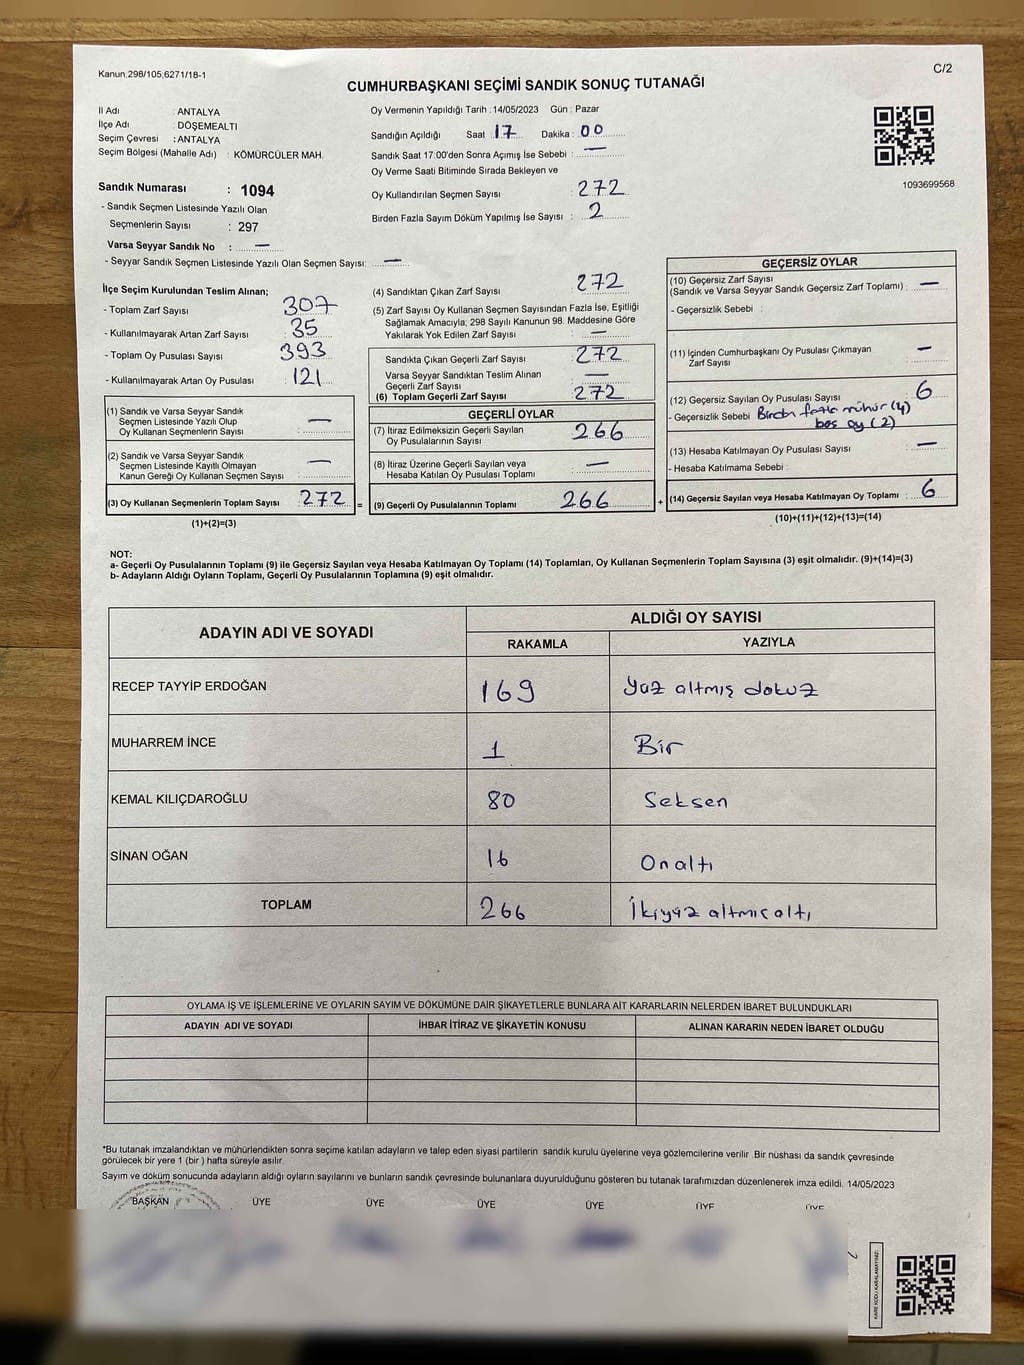 Kanun;298/105,6271/18-1
C/2
CUMHURBAŞKANI SEÇİMİ SANDIK SONUÇ TUTANAĞI
İl Adı : ANTALYA
İlçe Adı : DÖŞEMEALTI
Seçim Çevresi : ANTALYA
Seçim Bölgesi (Mahalle Adı) : KÖMÜRCÜLER MAH.
Sandık Numarası : 1094
- Sandık Seçmen Listesinde Yazılı Olan
Seçmenlerin Sayısı : 297
Varsa Seyyar Sandık No : —
- Seyyar Sandık Seçmen Listesinde Yazılı Olan Seçmen Sayısı: —
Oy Vermenin Yapıldığı Tarih : 14/05/2023 Gün : Pazar
Sandığın Açıldığı Saat 17 Dakika : 00
Sandık Saat 17:00'den Sonra Açımış İse Sebebi : —
Oy Verme Saati Bitiminde Sırada Bekleyen ve
Oy Kullandırılan Seçmen Sayısı : 272
Birden Fazla Sayım Döküm Yapılmış İse Sayısı : 2
1093699568
İlçe Seçim Kurulundan Teslim Alınan;
- Toplam Zarf Sayısı : 307
- Kullanılmayarak Artan Zarf Sayısı : 35
- Toplam Oy Pusulası Sayısı : 393
- Kullanılmayarak Artan Oy Pusulası : 121
(1) Sandık ve Varsa Seyyar Sandık
Seçmen Listesinde Yazılı Olup
Oy Kullanan Seçmenlerin Sayısı : —
(2) Sandık ve Varsa Seyyar Sandık
Seçmen Listesinde Kayıtlı Olmayan
Kanun Gereği Oy Kullanan Seçmen Sayısı : —
(3) Oy Kullanan Seçmenlerin Toplam Sayısı : 272
(1)+(2)=(3)
(4) Sandıktan Çıkan Zarf Sayısı : 272
(5) Zarf Sayısı Oy Kullanan Seçmen Sayısından Fazla İse, Eşitliği
Sağlamak Amacıyla; 298 Sayılı Kanunun 98. Maddesine Göre
Yakılarak Yok Edilen Zarf Sayısı : —
Sandıkta Çıkan Geçerli Zarf Sayısı : 272
Varsa Seyyar Sandıktan Teslim Alınan
Geçerli Zarf Sayısı : —
(6) Toplam Geçerli Zarf Sayısı : 272
GEÇERLİ OYLAR
(7) İtiraz Edilmeksizin Geçerli Sayılan
Oy Pusulalarının Sayısı : 266
(8) İtiraz Üzerine Geçerli Sayılan veya
Hesaba Katılan Oy Pusulası Toplamı : —
= (9) Geçerli Oy Pusulalarının Toplamı : 266 +
GEÇERSİZ OYLAR
(10) Geçersiz Zarf Sayısı
(Sandık ve Varsa Seyyar Sandık Geçersiz Zarf Toplamı) : —
- Geçersizlik Sebebi :
(11) İçinden Cumhurbaşkanı Oy Pusulası Çıkmayan
Zarf Sayısı : —
(12) Geçersiz Sayılan Oy Pusulası Sayısı : 6
- Geçersizlik Sebebi Birden fazla mühür (4)
boş oy (2)
(13) Hesaba Katılmayan Oy Pusulası Sayısı : —
- Hesaba Katılmama Sebebi :
(14) Geçersiz Sayılan veya Hesaba Katılmayan Oy Toplamı : 6
(10)+(11)+(12)+(13)=(14)
NOT:
a- Geçerli Oy Pusulalarının Toplamı (9) ile Geçersiz Sayılan veya Hesaba Katılmayan Oy Toplamı (14) Toplamları, Oy Kullanan Seçmenlerin Toplam Sayısına (3) eşit olmalıdır. (9)+(14)=(3)
b- Adayların Aldığı Oyların Toplamı, Geçerli Oy Pusulalarının Toplamına (9) eşit olmalıdır.
ADAYIN ADI VE SOYADI
ALDIĞI OY SAYISI
RAKAMLA YAZIYLA
RECEP TAYYİP ERDOĞAN 169 Yüz altmış dokuz
MUHARREM İNCE 1 Bir
KEMAL KILIÇDAROĞLU 80 Seksen
SİNAN OĞAN 16 Onaltı
TOPLAM 266 İkiyüz altmışaltı
OYLAMA İŞ VE İŞLEMLERİNE VE OYLARIN SAYIM VE DÖKÜMÜNE DAİR ŞİKAYETLERLE BUNLARA AİT KARARLARIN NELERDEN İBARET BULUNDUKLARI
ADAYIN ADI VE SOYADI İHBAR İTİRAZ VE ŞİKAYETİN KONUSU ALINAN KARARIN NEDEN İBARET OLDUĞU
*Bu tutanak imzalandıktan ve mühürlendikten sonra seçime katılan adayların ve talep eden siyasi partilerin sandık kurulu üyelerine veya gözlemcilerine verilir .Bir nüshası da sandık çevresinde
görülecek bir yere 1 (bir ) hafta süreyle asılır.
Sayım ve döküm sonucunda adayların aldığı oyların sayılarını ve bunların sandık çevresinde bulunanlara duyurulduğunu gösteren bu tutanak tarafımızdan düzenlenerek imza edildi. 14/05/2023
BAŞKAN ÜYE ÜYE ÜYE ÜYE ÜYE ÜYE
KARE KODU KARALAMAYINIZ!